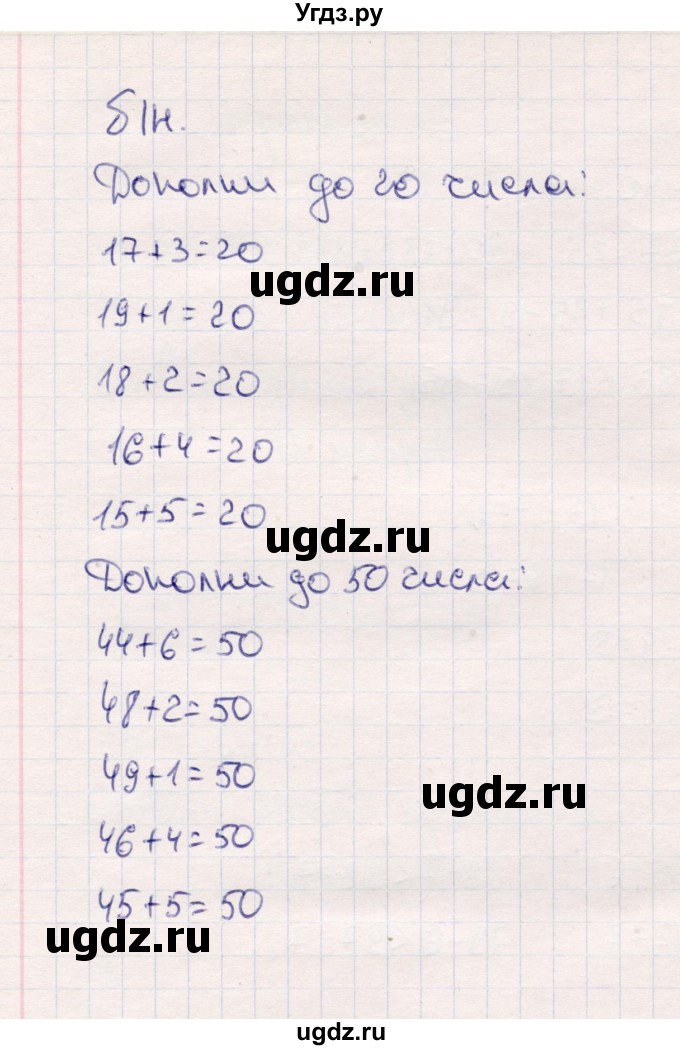 Угдз.ру
б/н.
Дополни до 20 числа:
17+3=20
ugdz.ru
19+1=20
18+2=20
16+4=20
15+5=20
ugdz.ru
Дополни до 50 числа:
44+6=50
48+2=50
49+1=50
ugdz.ru
46+4=50
45+5=50
ugdz.ru
ugdz.ru